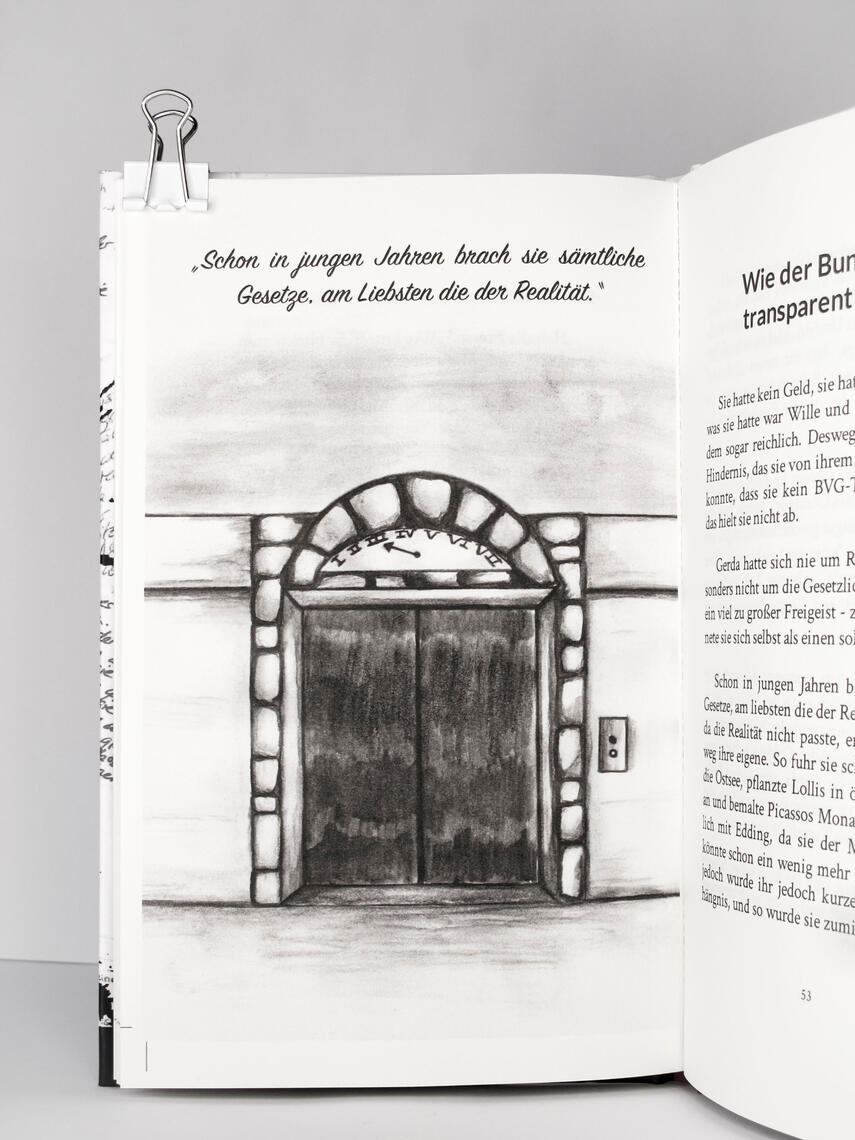 „Schon in jungen Jahren brach sie sämtliche
Gesetze, am Liebsten die der Realität.“
I II III IV V VI VII
Wie der Bun
transparent
Sie hatte kein Geld, sie hat
was sie hatte war Wille und
dem sogar reichlich. Desweg
Hindernis, das sie von ihrem
konnte, dass sie kein BVG-T
das hielt sie nicht ab.
Gerda hatte sich nie um R
sonders nicht um die Gesetzlic
ein viel zu großer Freigeist - z
nete sie sich selbst als einen sol
Schon in jungen Jahren b
Gesetze, am liebsten die der Re
da die Realität nicht passte, er
weg ihre eigene. So fuhr sie sc
die Ostsee, pflanzte Lollis in ö
an und bemalte Picassos Mona
lich mit Edding, da sie der M
könnte schon ein wenig mehr
jedoch wurde ihr jedoch kurze
hängnis, und so wurde sie zumi
53